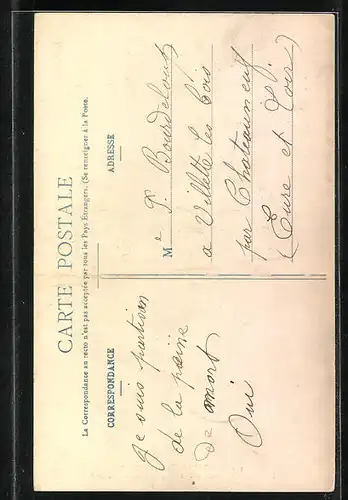 CARTE POSTALE
La Correspondance au recto n'est pas acceptée par tous les Pays Étrangers. (Se renseigner à la Poste.)
CORRESPONDANCE
Je suis partisan
de la peine
de mort
Oui
ADRESSE
M
a Villette les bois
par Chateauneuf
(Eure et Loir)